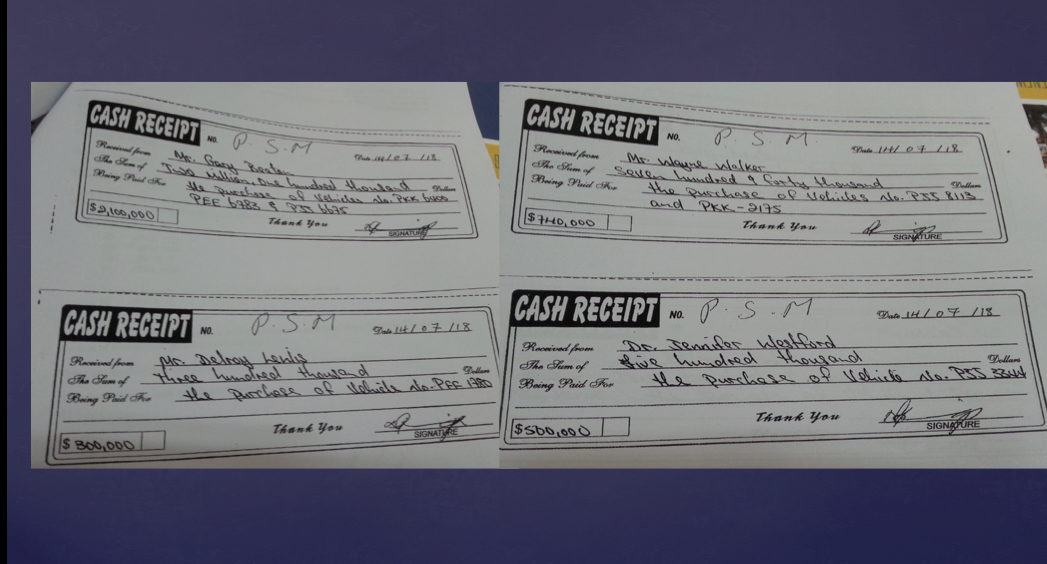 CASH RECEIPT NO. P.S.M
Date 14/07/18
Received from Mr. Gary
The Sum of Two Million One hundred thousand Dollars
Being Paid For the purchase of Vehicles No. PKK
PEE 6783 & PJJ 6675
$2,100,000
Thank You
SIGNATURE
CASH RECEIPT NO. P.S.M
Date 14/07/18
Received from Mr. Wayne Walker
The Sum of Seven hundred & forty thousand Dollars
Being Paid For the purchase of Vehicles No. PJJ 8113
and PKK - 2175
$740,000
Thank You
SIGNATURE
CASH RECEIPT NO. P.S.M
Date 14/07/18
Received from Mr. Delroy Lewis
The Sum of Three hundred thousand Dollars
Being Paid For the purchase of Vehicle No.
$300,000
Thank You
SIGNATURE
CASH RECEIPT NO. P.S.M
Date 14/07/18
Received from Dr. Jennifer Westford
The Sum of five hundred thousand Dollars
Being Paid For the purchase of Vehicle No. PJJ 3344
$500,000
Thank You
SIGNATURE